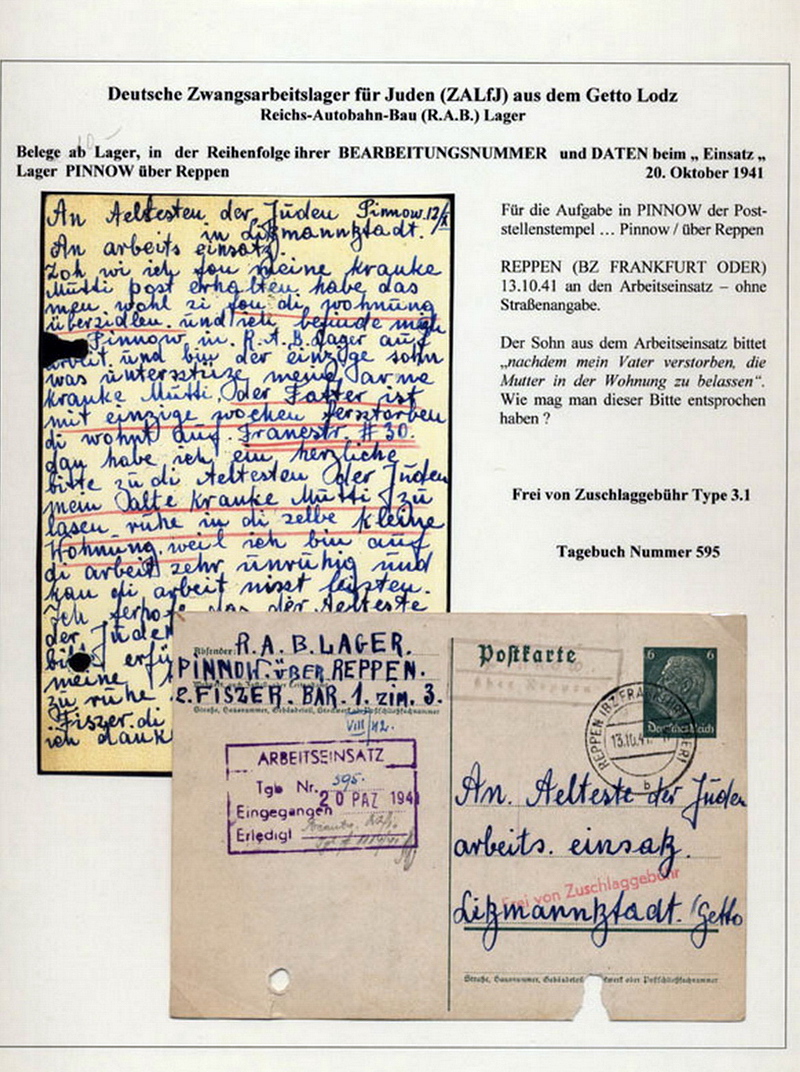 Deutsche Zwangsarbeitslager für Juden (ZALfJ) aus dem Getto Lodz
Reichs-Autobahn-Bau (R.A.B.) Lager
Belege ab Lager, in der Reihenfolge ihrer BEARBEITUNGSNUMMER und DATEN beim „ Einsatz „
Lager PINNOW über Reppen 20. Oktober 1941
An Aeltesten der Juden Pinnow. 12/X
in Litzmannstadt.
An arbeits einsatz.
wi ich fon meine kranke
Mutti post erhalten habe das
men wohl zi fon di wohnung
überzidlen. und ich befinde mich
Pinnow in. R. A. B. Lager auf
arbeit. und bin der einzige sohn
was unterstitze meine arme
kranke Mutti. der Fatter ist
mit einzige wochen ferstorben
di wohnt auf. Franzstr. # 30.
dan habe ich ein herzliche
bitte zu di Aeltesten der Juden
mein alte kranke Mutti zu
lasen ruhe in di zelbe kleine
Wohnung. weil ich bin auf
di arbeit zehr unruhig und
kan di arbeit nisst leisten.
Ich das der Aelteste
der Juden
erfü
meine
zu ruhe
Fiszer. di
ich dank
Für die Aufgabe in PINNOW der Post-
stellenstempel ... Pinnow / über Reppen
REPPEN (BZ FRANKFURT ODER)
13.10.41 an den Arbeitseinsatz – ohne
Straßenangabe.
Der Sohn aus dem Arbeitseinsatz bittet
„nachdem mein Vater verstorben, die
Mutter in der Wohnung zu belassen“.
Wie mag man dieser Bitte entsprochen
haben ?
Frei von Zuschlaggebühr Type 3.1
Tagebuch Nummer 595
Absender:
R. A. B. LAGER.
PINNOW. ÜBER REPPEN.
FISZER. BAR. 1. zim. 3.
Straße, Hausnummer, Gebäudeteil, Stockwerk oder Postschließfachnummer
VIII/42.
ARBEITSEINSATZ
Tgb Nr. 595.
Eingegangen 20 PAZ 194
Erledigt
Postkarte
über Reppen
6 6
Deutsches Reich
REPPEN (BZ FRANKFURT ODER)
13.10.41
b
An. Aelteste der Juden
arbeits. einsatz.
Frei von Zuschlaggebühr
Litzmannstadt. Getto
Straße, Hausnummer, Gebäudeteil, Stockwerk oder Postschließfachnummer